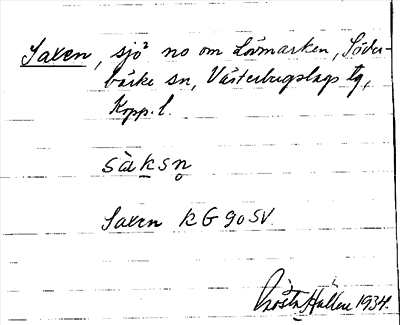 Saxen, sjö² no om Lövmarken, Söder-
bärke sn, Västerbergslags tg,
Kopp. l.
sàksn̥
Saxen KG 90 SV
Gösta Hallén 1934.